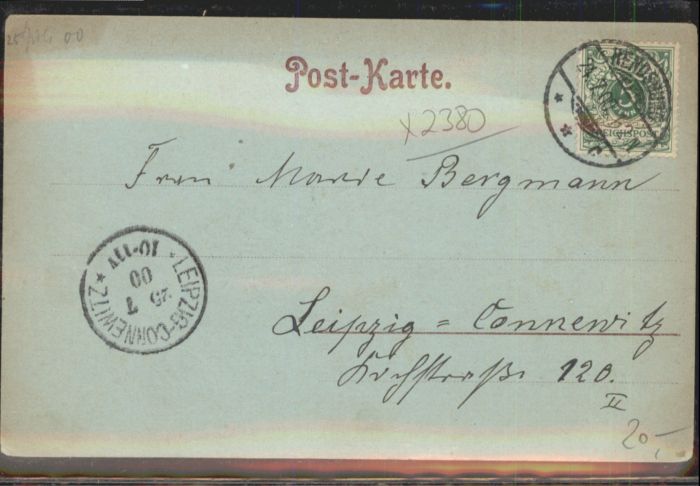 00
Post-Karte.
RENDSBURG
REICHSPOST
X2380
Frau Marie Bergmann
LEIPZIG-CONNEWITZ
10-11V
25 7
00
Leipzig = Connewitz
Kochstraße 120.
II
20,-